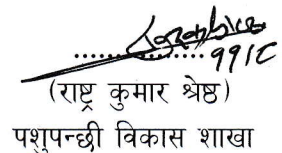 ..................
९११८
(राष्ट्र कुमार श्रेष्ठ)
पशुपन्छी विकास शाखा